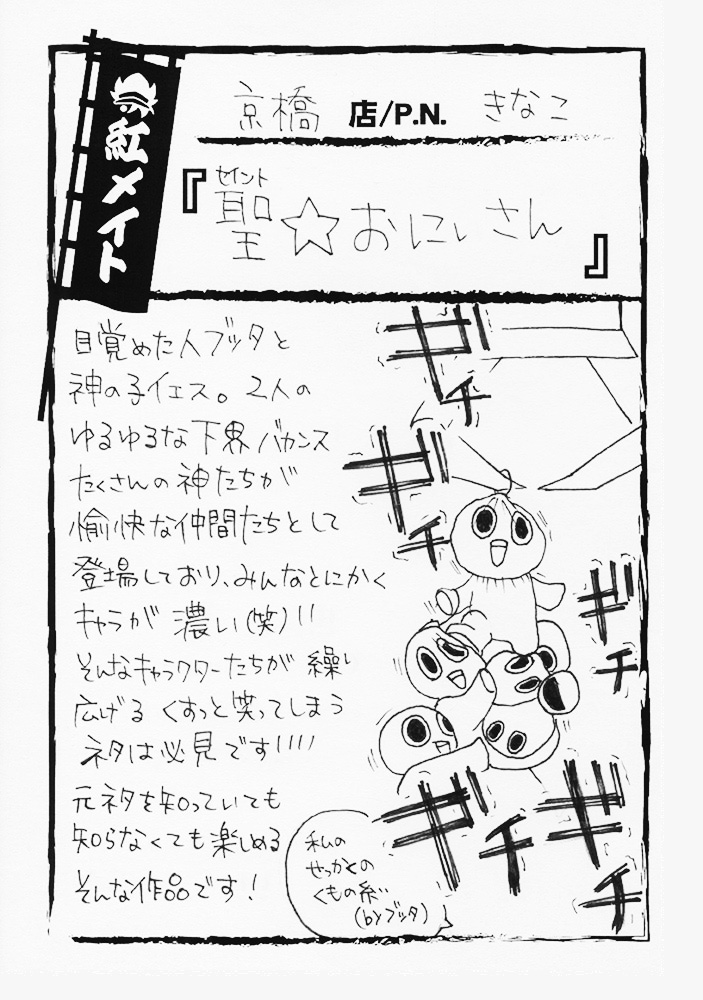 紅メイト
京橋 店/P.N. きなこ
『聖☆おにぃさん』
セイント
目覚めた人ブッタと
神の子イエス。2人の
ゆるゆるな下界バカンス
たくさんの神たちが
愉快な仲間たちとして
登場しており、みんなとにかく
キャラが濃い(笑)!!
そんなキャラクターたちが繰り
広げるくすっと笑ってしまう
ネタは必見です!!!!
元ネタを知っていても
知らなくても楽しめる
そんな作品です!
ギチ
ギチ
ギチ
ギチ
ギチ
私の
せっかとの
くもの糸‥
(byブッタ)